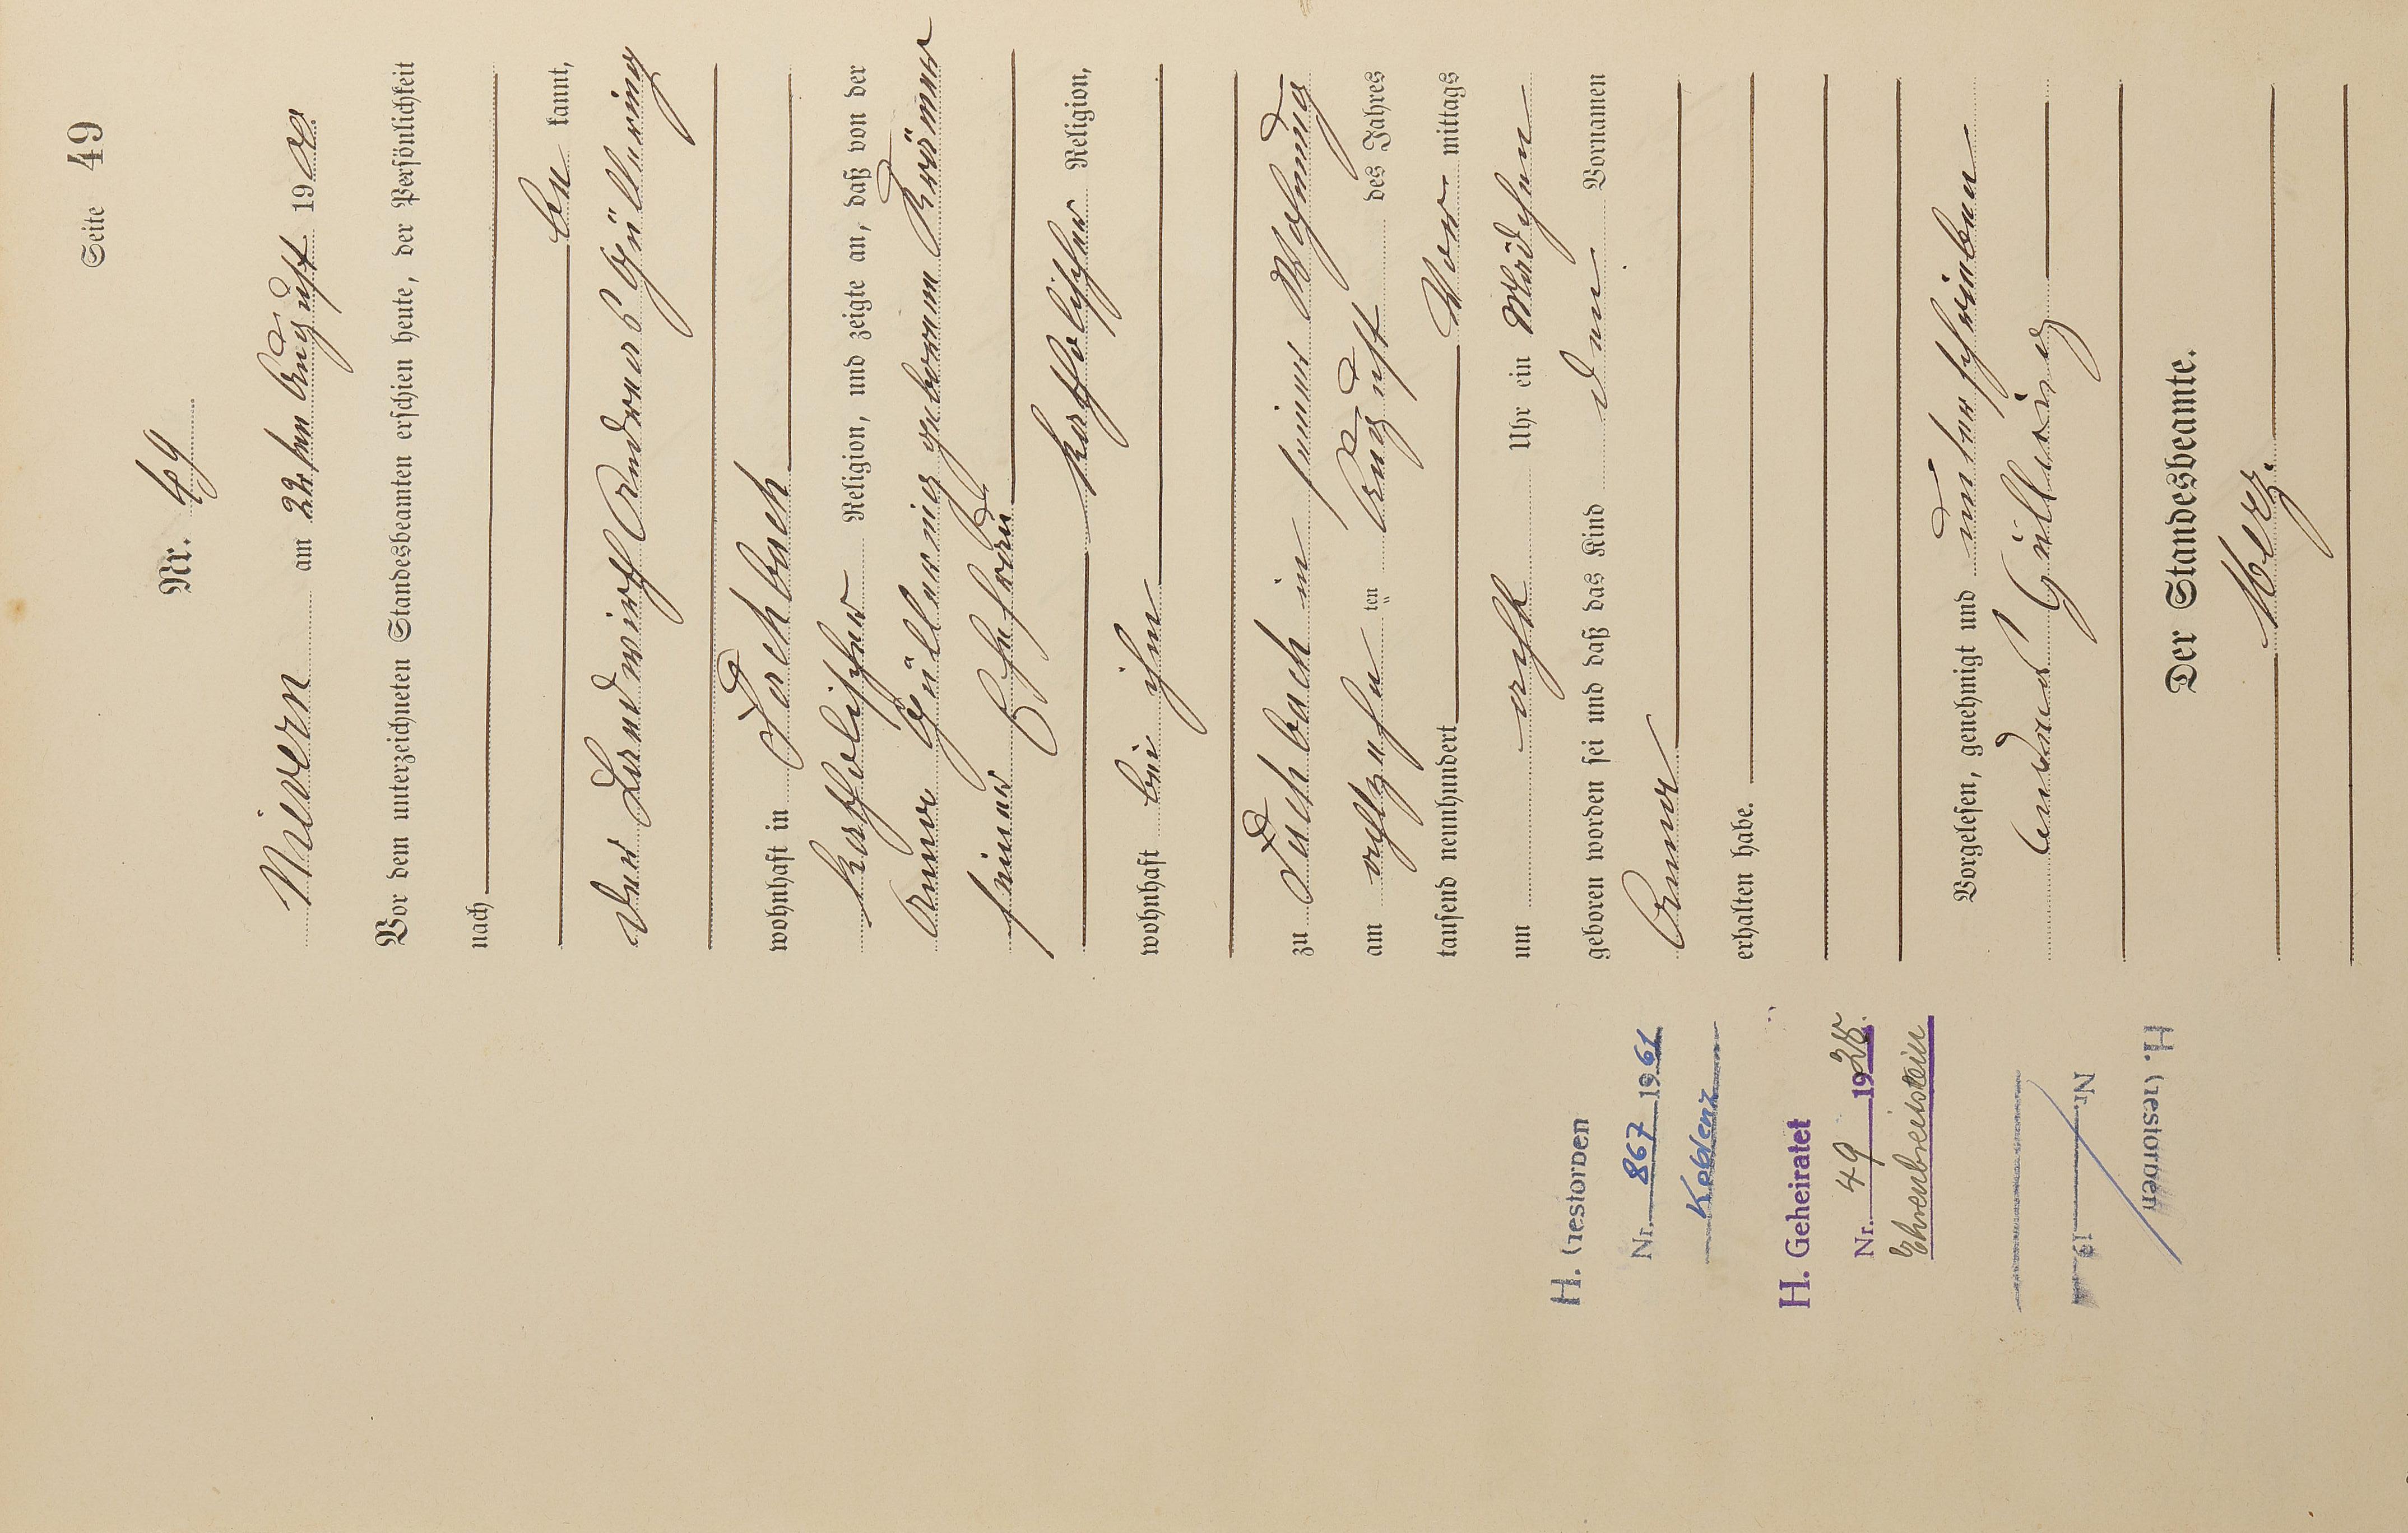 Seite 49
Nr. 49
Nievern am 22ten August 1900
Vor dem unterzeichneten Standesbeamten erschien heute, der Persönlichkeit
nach
be kannt,
der Landwirth Andreas Gülluring
wohnhaft in Dachbach
katholischer Religion, und zeigte an, daß von der
Anna geborenen
seiner Ehefrau
katholischer Religion,
wohnhaft bei ihm
zu Dachbach in seiner Wohnung
am achtzehn ten August des Jahres
tausend neunhundert Vor mittags
um acht Uhr ein Mädchen
geboren worden sei und daß das Kind den Vornamen
Anna
erhalten habe.
Vorgelesen, genehmigt und unterschrieben
Andreas
Der Standesbeamte.
H. Gestorben
Nr. 867 1961
Koblenz
H. Geheiratet
Nr. 49 1928.
Ehrenbreitstein
H. Gestorben
Nr. 19